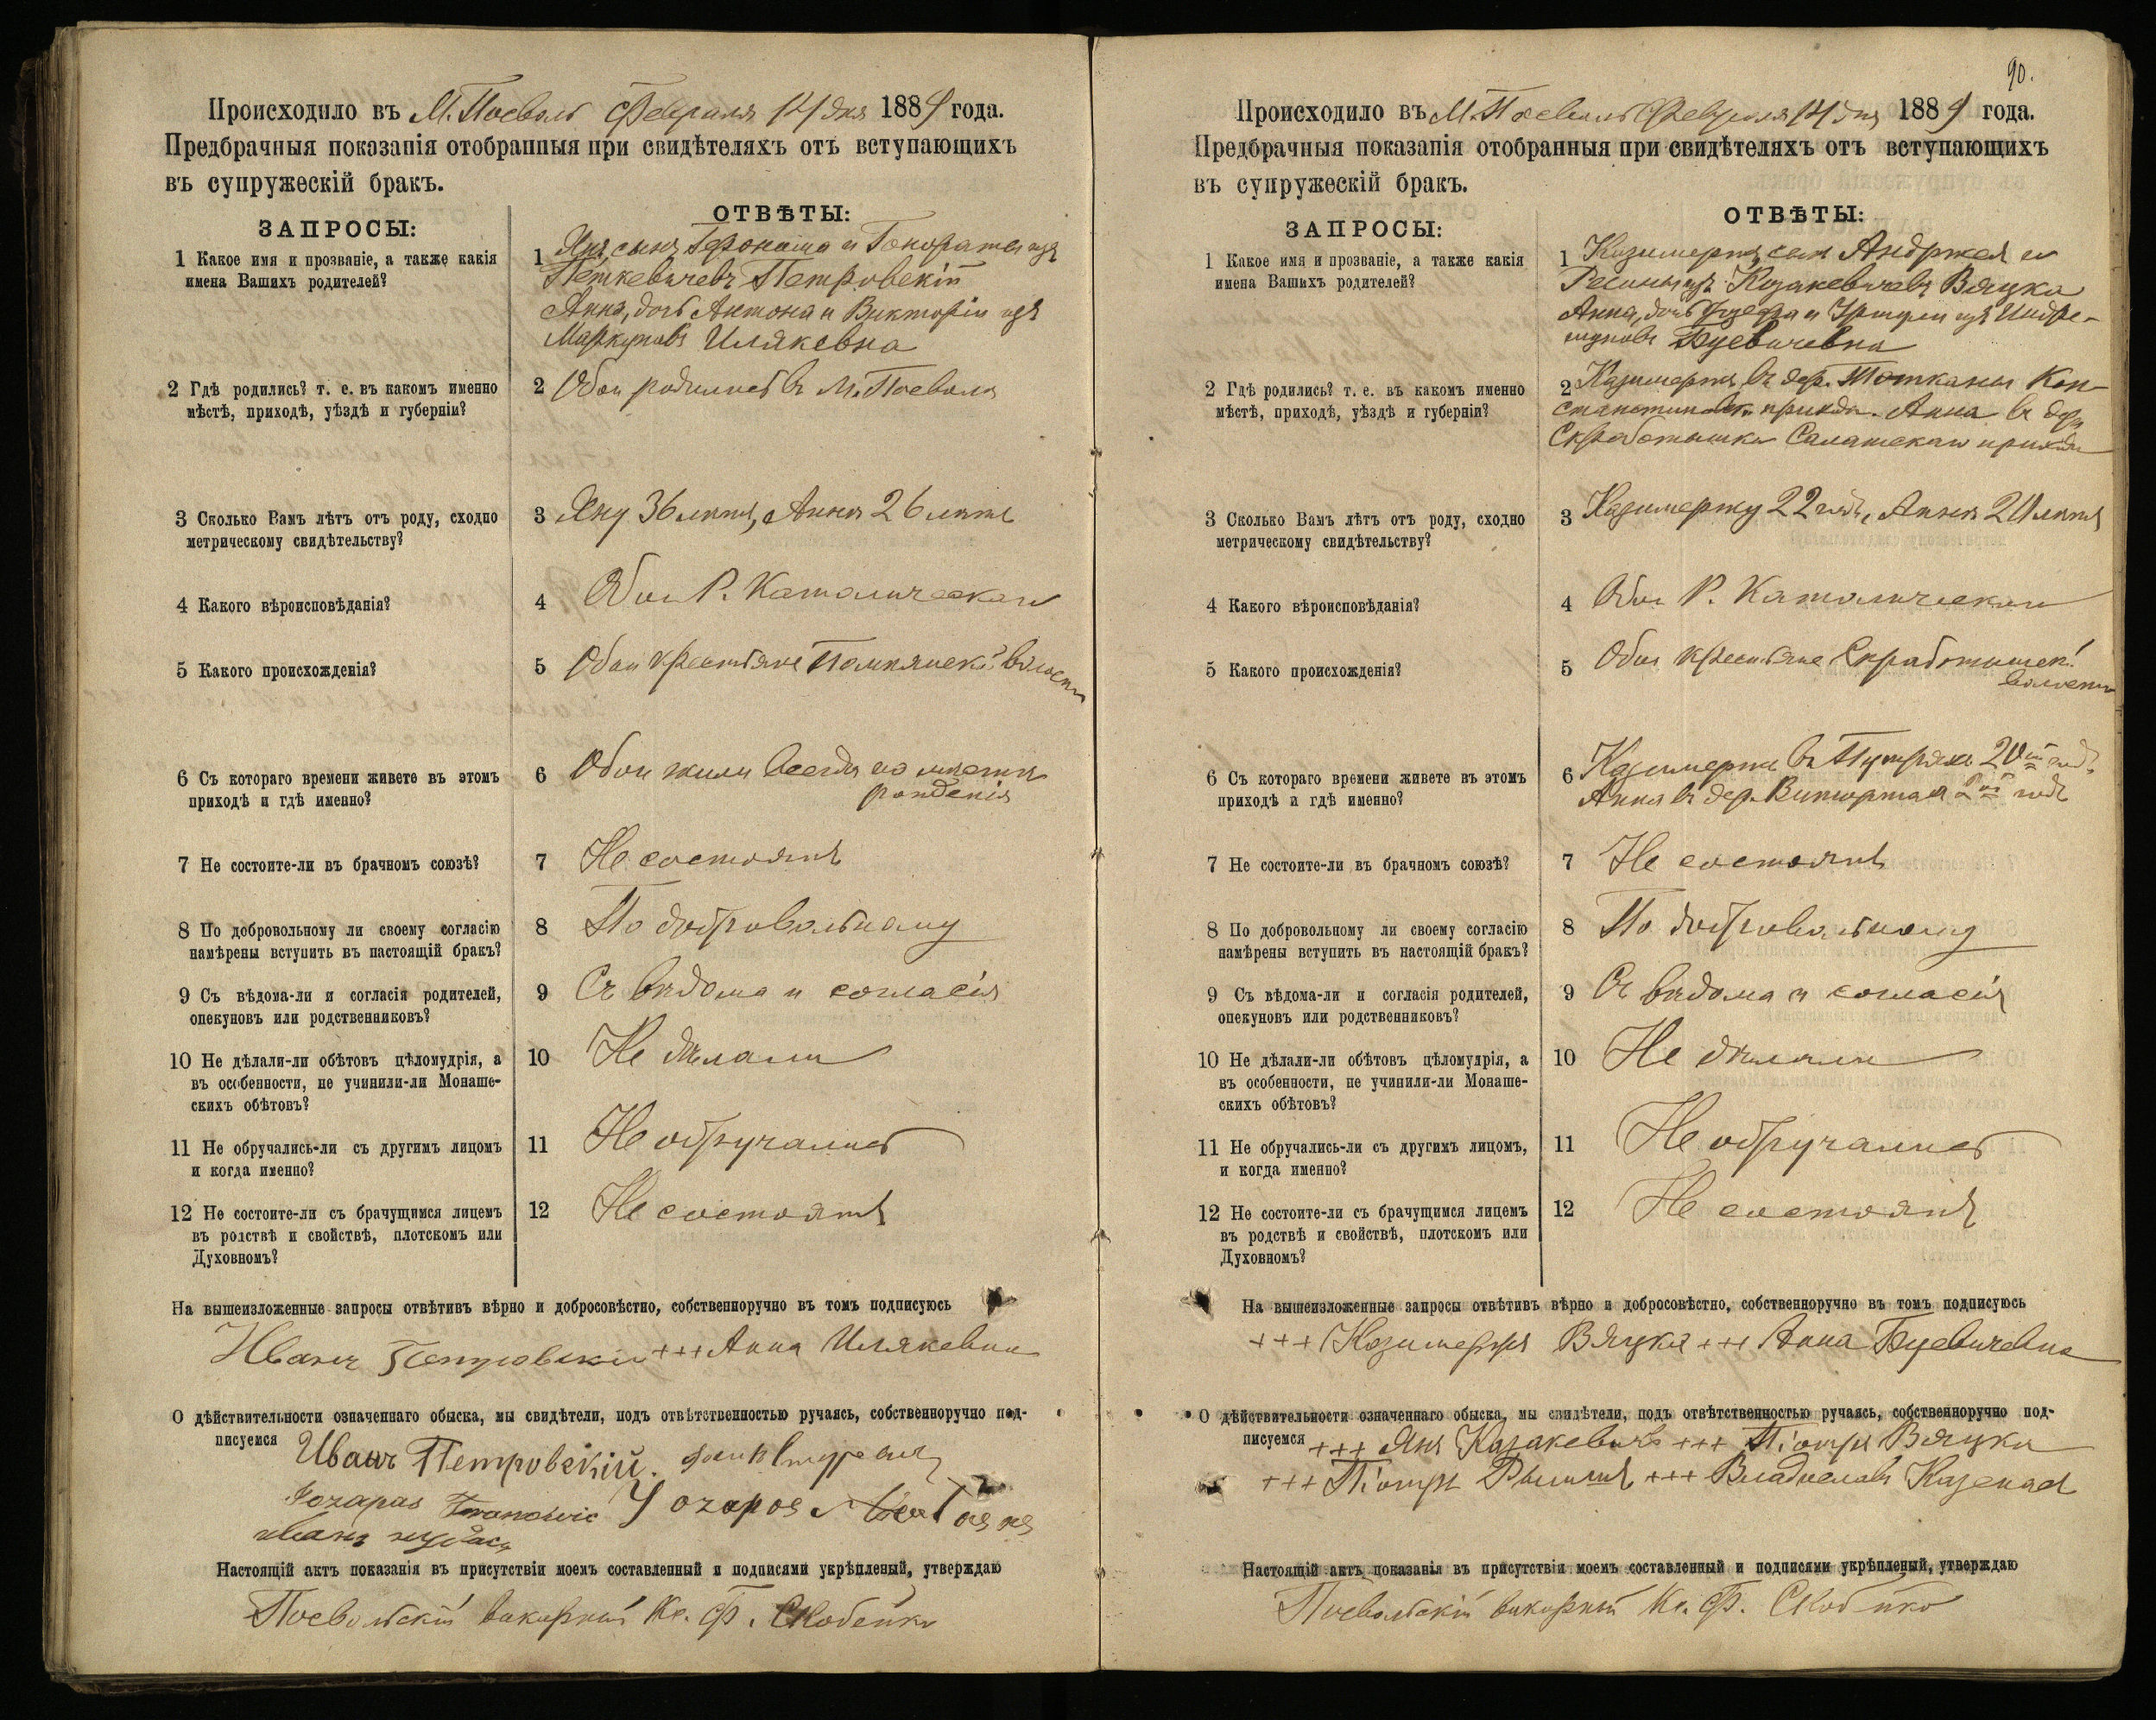 Происходило въ М. Поеволь Февраля 14 дня 1889 года.
Предбрачныя показанія отобранныя при свидѣтеляхъ отъ вступающихъ
въ супружескій бракъ.
ЗАПРОСЫ:
ОТВѢТЫ:
1 Какое имя и прозваніе, а также какія
имена Вашихъ родителей?
1 Янъ, сынъ и Гонораты изъ
Петкевичевъ Петровскій
Анна, дочь Антона и Викторіи изъ
Маркуновъ Илякевна
2 Гдѣ родились? т. е. въ какомъ именно
мѣстѣ, приходѣ, уѣздѣ и губерніи?
2 Обои родились въ М. Поеволѣ
3 Сколько Вамъ лѣтъ отъ роду, сходно
метрическому свидѣтельству?
3 Яну 36 лѣтъ, Аннѣ 26 лѣтъ
4 Какого вѣроисповѣданія?
4 Обои Р. Католическаго
5 Какого происхожденія?
5 Обои крестьяне волости
6 Съ котораго времени живете въ этомъ
приходѣ и гдѣ именно?
6 Обои жили всегда на мѣстѣ
рожденія
7 Не состоите-ли въ брачномъ союзѣ?
7 Не состоятъ
8 По добровольному ли своему согласію
намѣрены вступить въ настоящій бракъ?
8 По добровольному
9 Съ вѣдома-ли и согласія родителей,
опекуновъ или родственниковъ?
9 Съ вѣдома и согласія
10 Не дѣлали-ли обѣтовъ цѣломудрія, а
въ особенности, не учинили-ли Монаше-
скихъ обѣтовъ?
10 Не дѣлали
11 Не обручались-ли съ другимъ лицомъ
и когда именно?
11 Не обручались
12 Не состоите-ли съ брачущимся лицемъ
въ родствѣ и свойствѣ, плотскомъ или
Духовномъ?
12 Не состоятъ
На вышеизложенные запросы отвѣтивъ вѣрно и добросовѣстно, собственноручно въ томъ подписуюсь
Иванъ Петровскій +++ Анна Илякевна
О дѣйствительности означеннаго обыска, мы свидѣтели, подъ отвѣтственностью ручаясь, собственноручно под-
писуемся Иванъ Петровскій.
Jozapas
Иванъ
Настоящій актъ показанія въ присутствіи моемъ составленный и подписями укрѣпленый, утверждаю
Поевольскій викарный Кс. Ф. Скобейко
90.
Происходило въ М. Поеволь Февраля 14 дня 1889 года.
Предбрачныя показанія отобранныя при свидѣтеляхъ отъ вступающихъ
въ супружескій бракъ.
ЗАПРОСЫ:
ОТВѢТЫ:
1 Какое имя и прозваніе, а также какія
имена Вашихъ родителей?
1 Казимержъ, сын Анджея и
изъ Козакевичевъ Вяцка
Анна, дочь и Уршули изъ Индре-
Буевичевна
2 Гдѣ родились? т. е. въ какомъ именно
мѣстѣ, приходѣ, уѣздѣ и губерніи?
2 Казимержъ въ дер. Кон-
стантиновск. прихода. Анна въ дер.
Скработишки прихода
3 Сколько Вамъ лѣтъ отъ роду, сходно
метрическому свидѣтельству?
3 Казимержу 22 года, Аннѣ лѣтъ
4 Какого вѣроисповѣданія?
4 Обои Р. Католическаго
5 Какого происхожденія?
5 Обои крестьяне Скработишск.
волости
6 Съ котораго времени живете въ этомъ
приходѣ и гдѣ именно?
6 Казимержъ въ годъ,
Анна въ дер. годъ
7 Не состоите-ли въ брачномъ союзѣ?
7 Не состоятъ
8 По добровольному ли своему согласію
намѣрены вступить въ настоящій бракъ?
8 По добровольному
9 Съ вѣдома-ли и согласія родителей,
опекуновъ или родственниковъ?
9 Съ вѣдома и согласія
10 Не дѣлали-ли обѣтовъ цѣломудрія, а
въ особенности, не учинили-ли Монаше-
скихъ обѣтовъ?
10 Не дѣлали
11 Не обручались-ли съ другимъ лицомъ,
и когда именно?
11 Не обручались
12 Не состоите-ли съ брачущимся лицемъ
въ родствѣ и свойствѣ, плотскомъ или
Духовномъ?
12 Не состоятъ
На вышеизложенные запросы отвѣтивъ вѣрно и добросовѣстно, собственноручно въ томъ подписуюсь
+++ Казимержъ Вяцка +++ Анна Буевичевна
О дѣйствительности означеннаго обыска, мы свидѣтели, подъ отвѣтственностью ручаясь, собственноручно под-
писуемся +++ Янъ Казакевичъ +++ Піотръ Вяцка
+++ Піотръ +++ Владиславъ
Настоящій актъ показанія въ присутствіи моемъ составленный и подписями укрѣпленый, утверждаю
Поевольскій викарный Кс. Ф. Скобейко